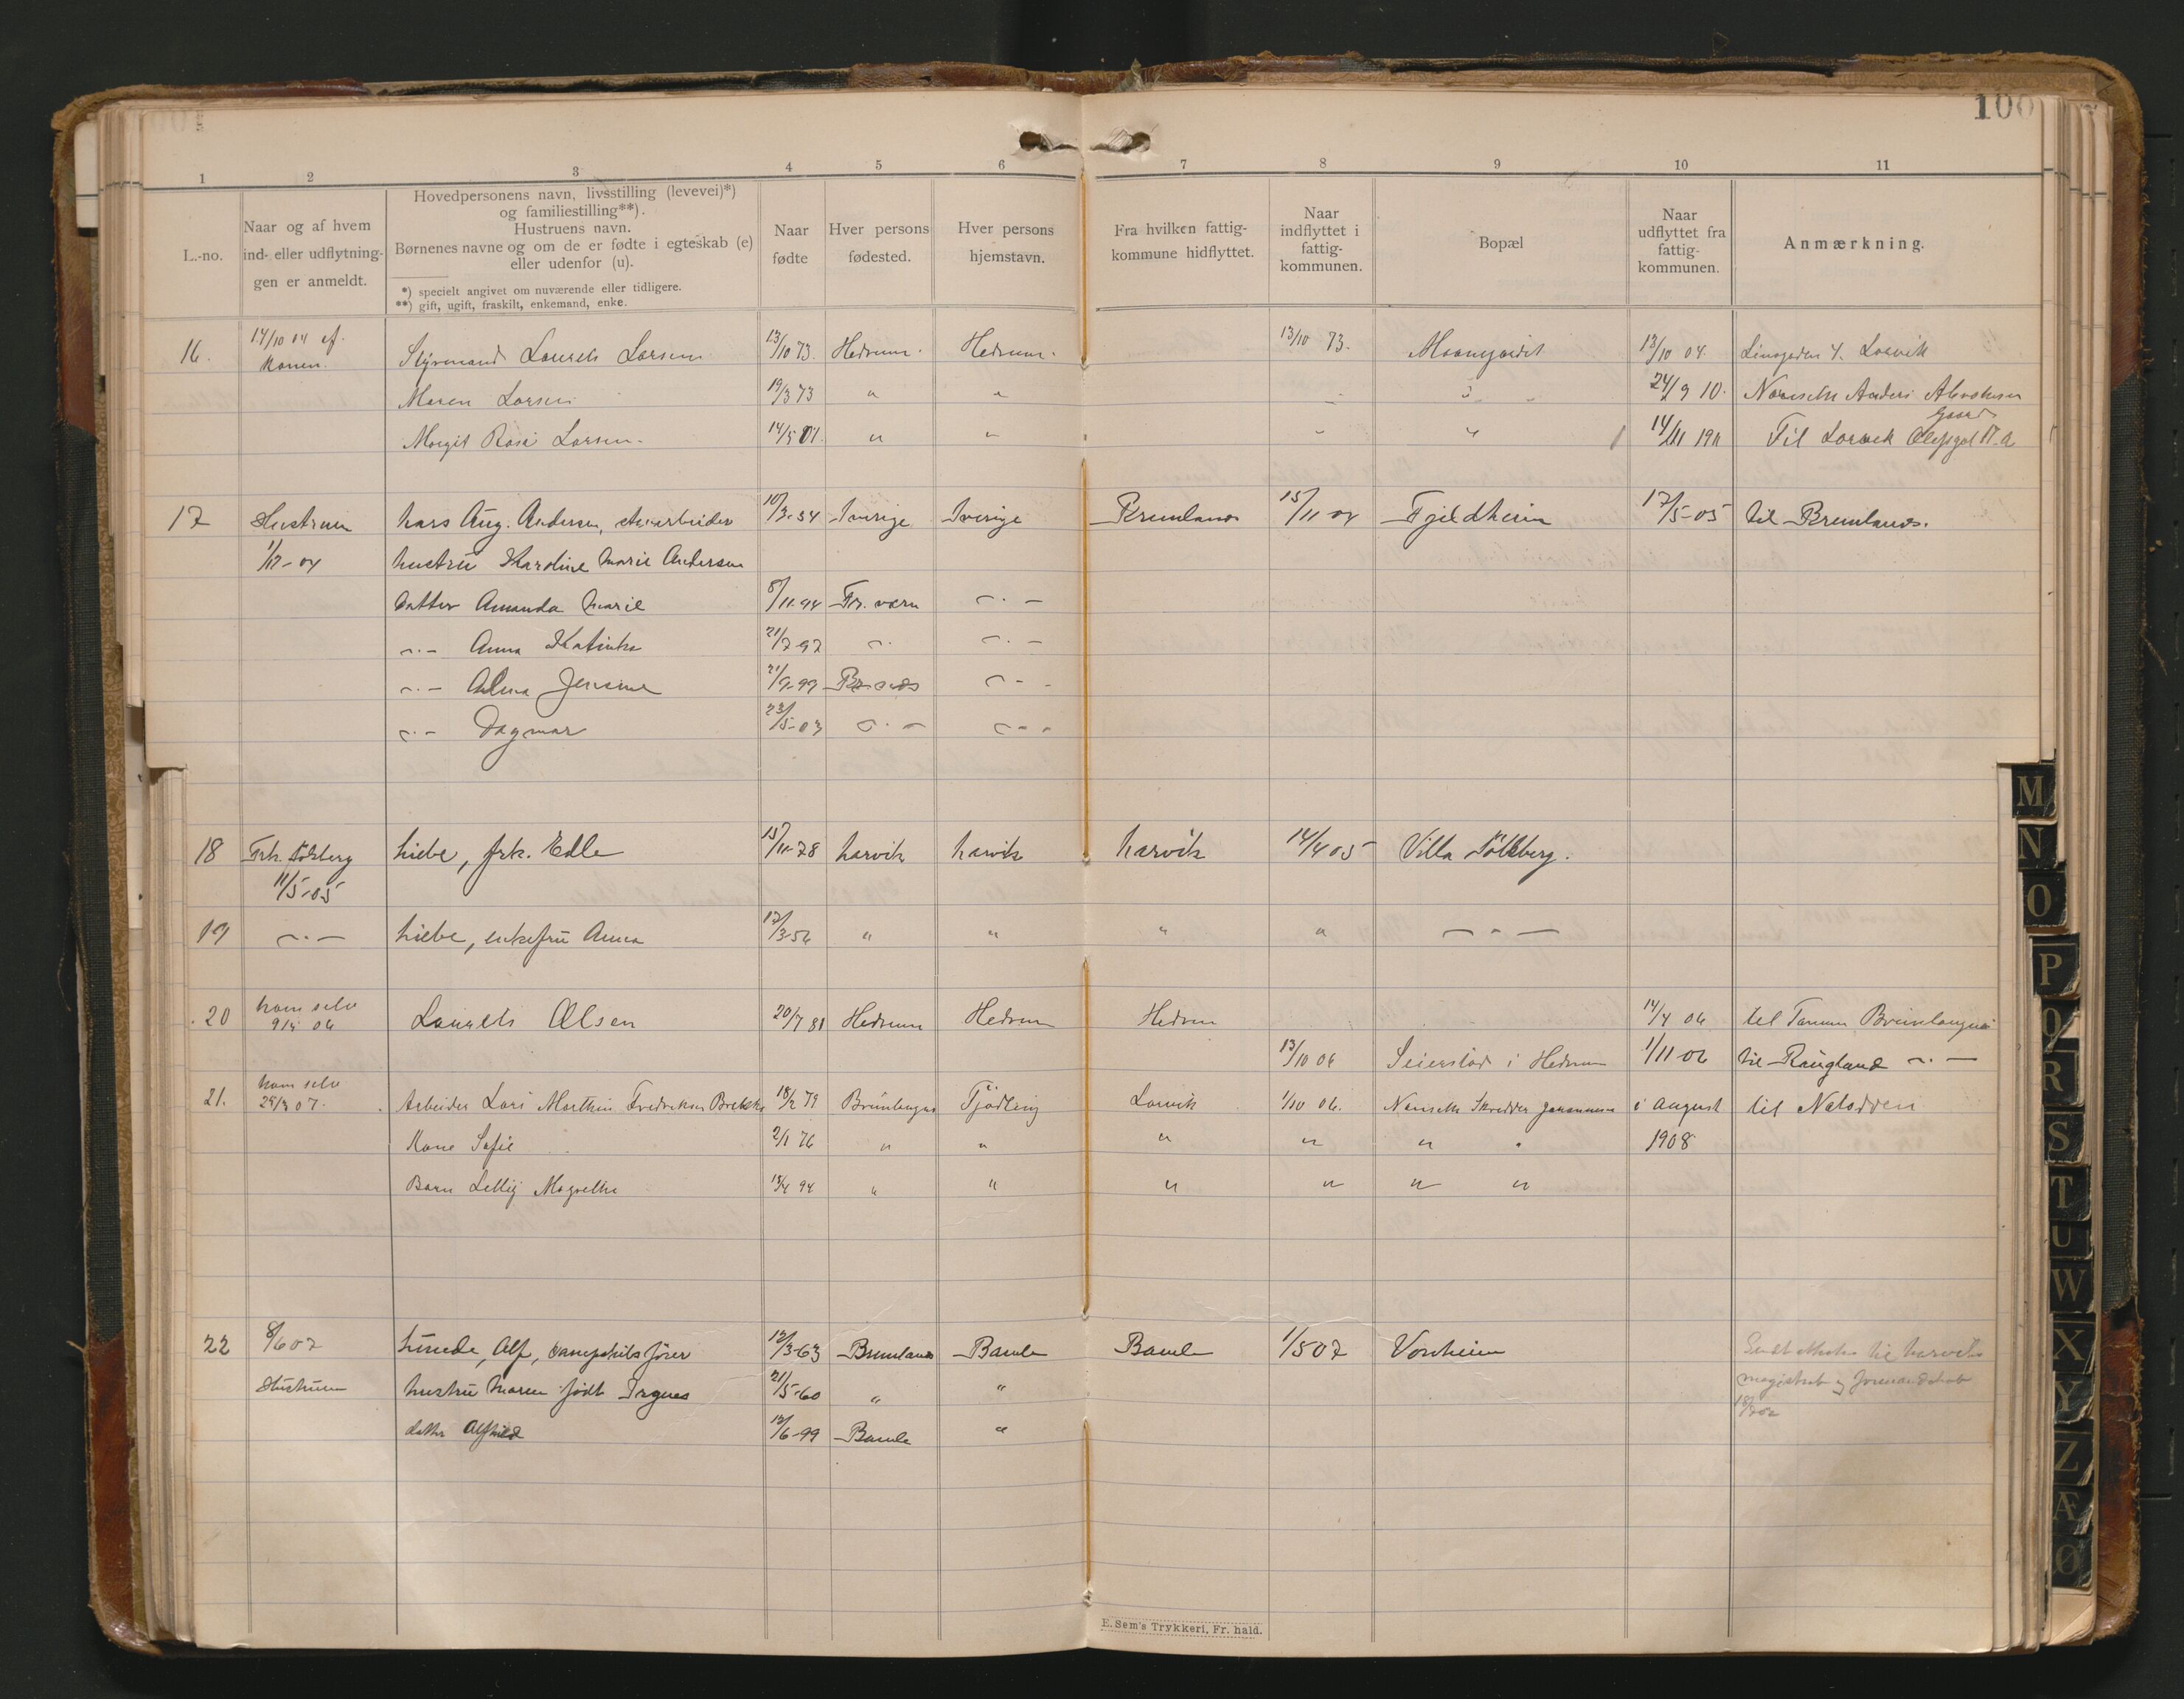 100
1 2 3 4 5 6 7 8 9 10 11
L.-no.
Naar og af hvem ind- eller udflytningen er anmeldt.
Hovedpersonens navn, livsstilling (levevei)*)
og familiestilling**).
Hustruens navn.
Børnenes navne og om de er fødte i egteskab (e)
eller udenfor (u).
*) specielt angivet om nuværende eller tidligere.
**) gift, ugift, fraskilt, enkemand, enke.
Naar fødte
Hver persons fødested.
Hver persons hjemstavn.
Fra hvilken fattigkommune hidflyttet.
Naar indflyttet i fattigkommunen.
Bopæl
Naar udflyttet fra fattigkommunen.
Anmærkning.
16. 14/10 04 af Konen. Styrmand Laurits Larsen 13/10 73. Hedrum. Hedrum. 13/10 73. 13/10 04. Larvik
Maren Larsen 19/3 73 " " " 24/9 10. Nanseth Anders
Gaard
Margit Larsen. 14/5 01. " " " " 14/11 1911 Til Larvik
17 Hustruen Lars Aug. Andersen, 10/3-54 Sverige Sverige Brunlanes 15/11 04 Fjeldheim 17/5-05 til Brunlanes.
1/12-04 hustru Karoline Marie Andersen
Datter Amanda Marie 8/11-94 Fr. værn -.-
-.- Anna Katinka 21/7 97 -.- -.-
-.- Alma Jensine 21/9-99 -.-
-.- Dagmar 23/5-03 -.- -.-
18 Frk. Solberg Liebe, frk. Edle 15/11-78 Larvik Larvik Larvik 14/4 05 Villa Solberg.
11/5-05
19 -.- Liebe, enkefru Anna 17/3-56 " " " " -"-
20 ham selv Laurits Olsen 20/7 81 Hedrum Hedrum Hedrum 14/4 06 til
9/4 06
13/10 06 Seierstad i Hedrum 1/11-06 til Raugland -.-
21. ham selv Arbeider Lars Marthin Fredriksen 18/2 79 Tjødling Larvik 1/10 06. Nanseth Skredder Johannesen i august til Notodden
29/3 07.
Kone Sofie 2/1 76 " " " " " " 1908
Barn Margrethe 15/4 94 " " " " " "
22 8/6 07 Lunde, Alf, dampskibsfører 12/3-63 Brunlanes Bamle Bamle 1/5 07 Vonheim
Hustruen hustru Maren født 21/5-60 " " magistrat og formandskab
datter Alfhild 12/6-99 Bamle "
E. Sem's Trykkeri, Fr. hald.
M
N
O
P
Q
R
S
T
U
W
X
Y
Z
Æ
Ø